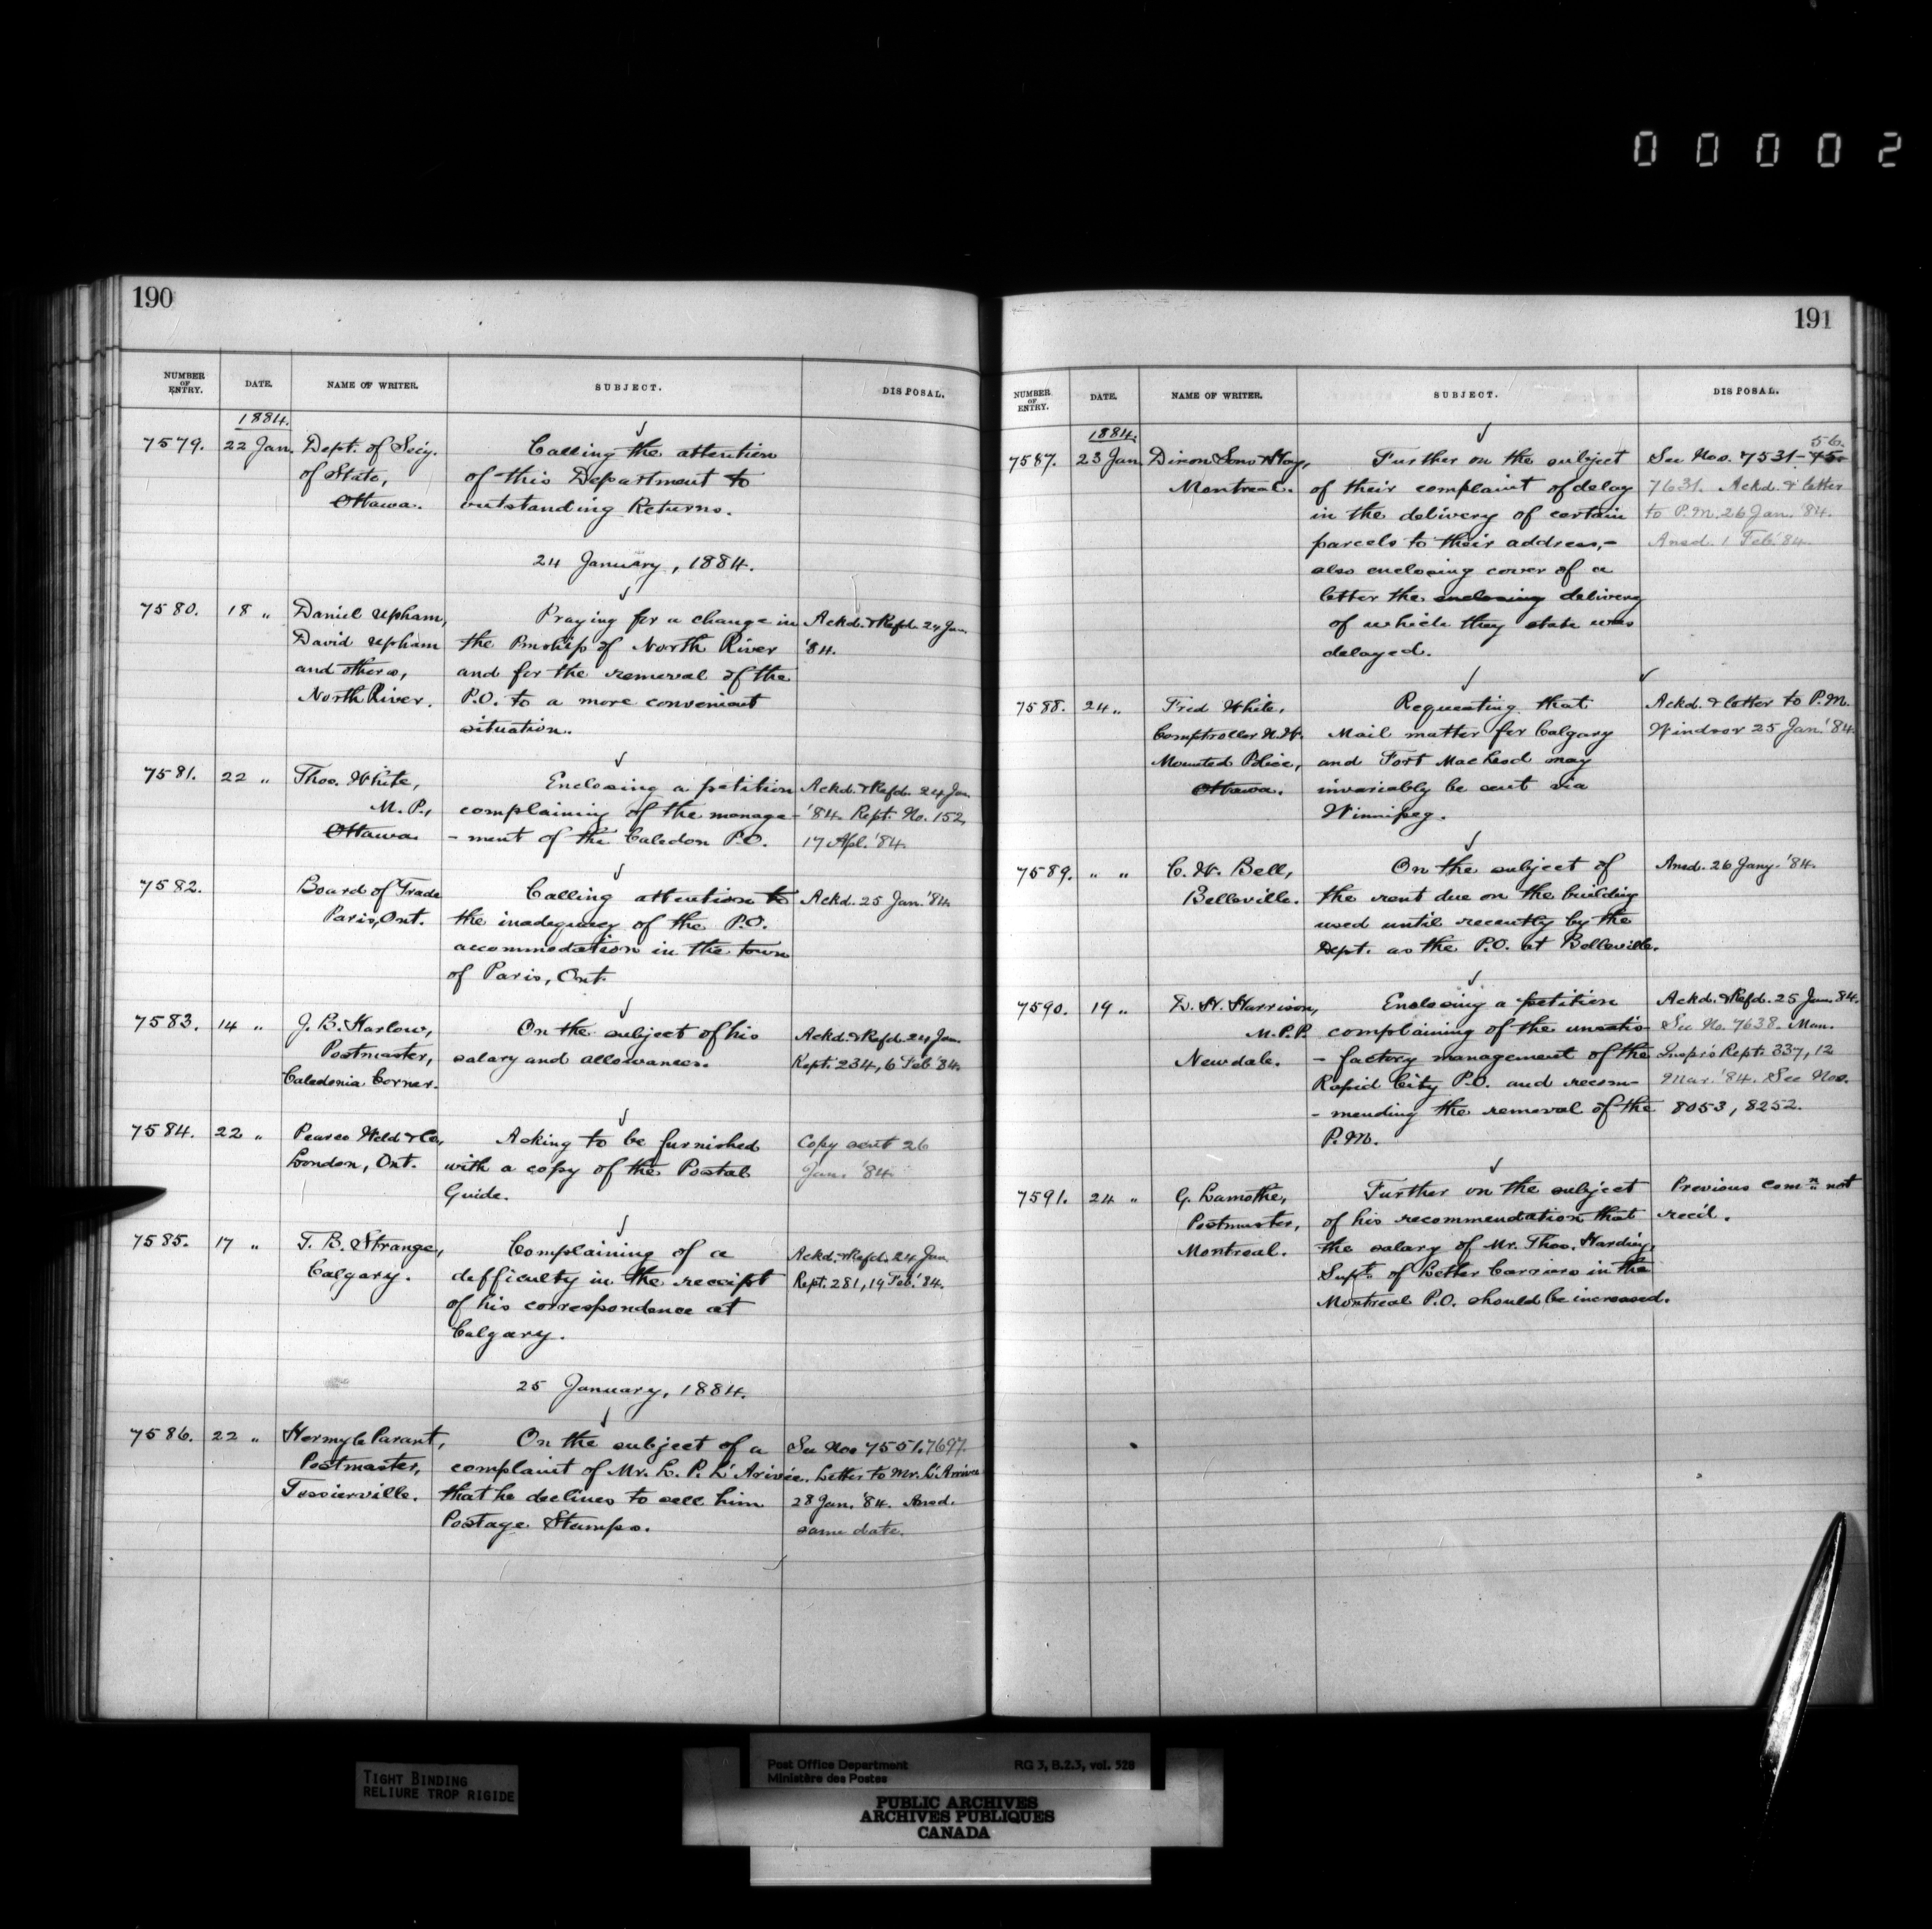 00002
190
NUMBER OF ENTRY. DATE. NAME OF WRITER. SUBJECT. DISPOSAL.
1884.
7579. 22 Jan. Dept. of Secy. Calling the attention
of State, of this Department to
Ottawa. outstanding Returns.
24 January, 1884.
7580. 18 " Daniel Upham, Praying for a change in Ackd. & Refd. 24 Jan.
David Upham the Pmship of North River '84.
and others, and for the removal of the
North River. P.O. to a more convenient
situation.
7581. 22 " Thos. White, Enclosing a petition Ackd. & Refd. 24 Jan.
M.P., complaining of the manage- '84. Rept. No. 152,
Ottawa - ment of the Caledon P.O. 17 Apl. '84.
7582. Board of Trade Calling attention to Ackd. 25 Jan. '84.
Paris, Ont. the inadequacy of the P.O.
accommodation in the town
of Paris, Ont.
7583. 14 " J. B. Harlow, On the subject of his Ackd. & Refd. 24 Jan.
Postmaster, salary and allowances. Rept. 234, 6 Feb '84.
Caledonia Corner.
7584. 22 " Pearce Weld & Co., Asking to be furnished Copy sent 26
London, Ont. with a copy of the Postal Jan. '84.
Guide.
7585. 17 " T. B. Strange, Complaining of a Ackd. & Refd. 24 Jan.
Calgary. defficulty in the receipt Rept. 281, 19 Feb. '84.
of his correspondence at
Calgary.
25 January, 1884.
7586. 22 " Hermyle Parant, On the subject of a See Nos 7551. 7697.
Postmaster, complaint of Mr. L. P. L'Arivée. Letter to Mr. L'Arrivee
Tessierville. that he declines to sell him 28 Jan. '84. Ansd.
Postage Stamps. same date.
191
NUMBER OF ENTRY. DATE. NAME OF WRITER. SUBJECT. DISPOSAL.
1884. 56.
7587. 23 Jan Dixon Sons & Hay, Further on the subject See Nos. 7531-45.
Montreal. of their complaint of delay 7631. Ackd. & letter
in the delivery of certain to P.M. 26 Jan. '84.
parcels to their address,- Ansd. 1 Feb. '84.
also enclosing cover of a
letter the enclosing delivery
of which they state was
delayed.
7588. 24 " Fred White, Requesting that Ackd. & letter to P.M.
Comptroller N.W. Mail matter for Calgary Windsor 25 Jan. '84.
Mounted Police, and Fort Macleod may
Ottawa. invariably be sent via
Winnipeg.
7589. " " C. W. Bell, On the subject of Ansd. 26 Jany. '84.
Belleville. the rent due on the building
used until recently by the
Dept. as the P.O. at Belleville.
7590. 19 " D. H. Harrison, Enclosing a petition Ackd. & Refd. 25 Jan. 84.
M.P.P. complaining of the unsatis See No. 7638. Man.
Newdale. - factory management of the Inspr's Rept. 337, 12
Rapid City P.O. and recom- Mar. '84. See Nos.
- mending the removal of the 8053, 8252.
P.M.
7591. 24 " G. Lamothe, Further on the subject Previous comn. not
Postmaster, of his recommendation that recd.
Montreal. the salary of Mr. Thos. Harding,
Supt. of Letter Carriers in the
Montreal P.O. should be increased.
TIGHT BINDING
RELIURE TROP RIGIDE
Post Office Department RG 3, B.2.3, vol. 528
Ministère des Postes
PUBLIC ARCHIVES
ARCHIVES PUBLIQUES
CANADA